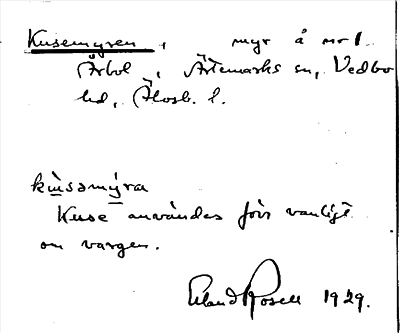 Kusemyren, myr å nr 1
Årbol, Ärtemarks sn, Vedbo
hd, Älvsb. l.
kùsəmýra
Kuse användes förr vanligt
om vargen.
Erland Rosell 1929.